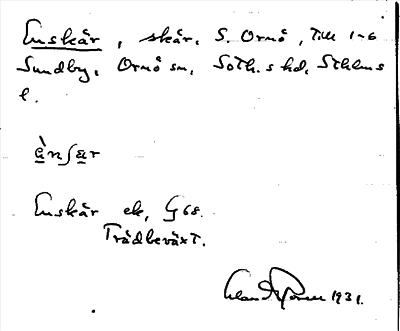 Enskär, skär, S. Ornö, till 1-6
Sundby, Ornö sn, Soth.s hd, Sthlms
l.
ènʃar
Enskär ek, G 68.
Trädbeväxt.
1931.